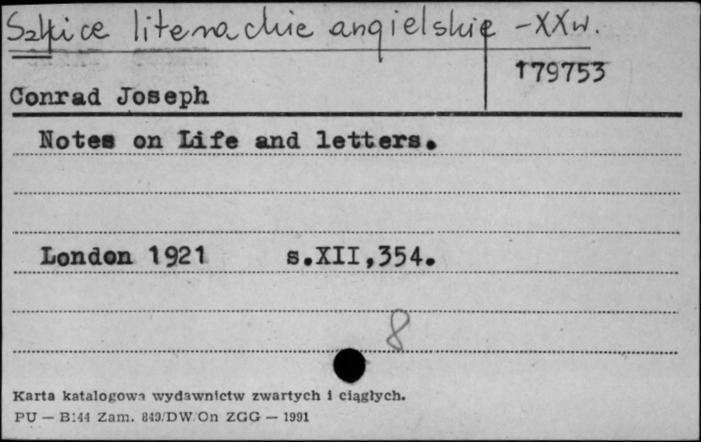 Szkice literackie angielskie - XX w.
179753
Conrad Joseph
Notes on Life and letters.
London 1921 s.XII,354.
8
Karta katalogowa wydawnictw zwartych i ciągłych.
PU — B144 Zam. 849/DW/On ZGG — 1991